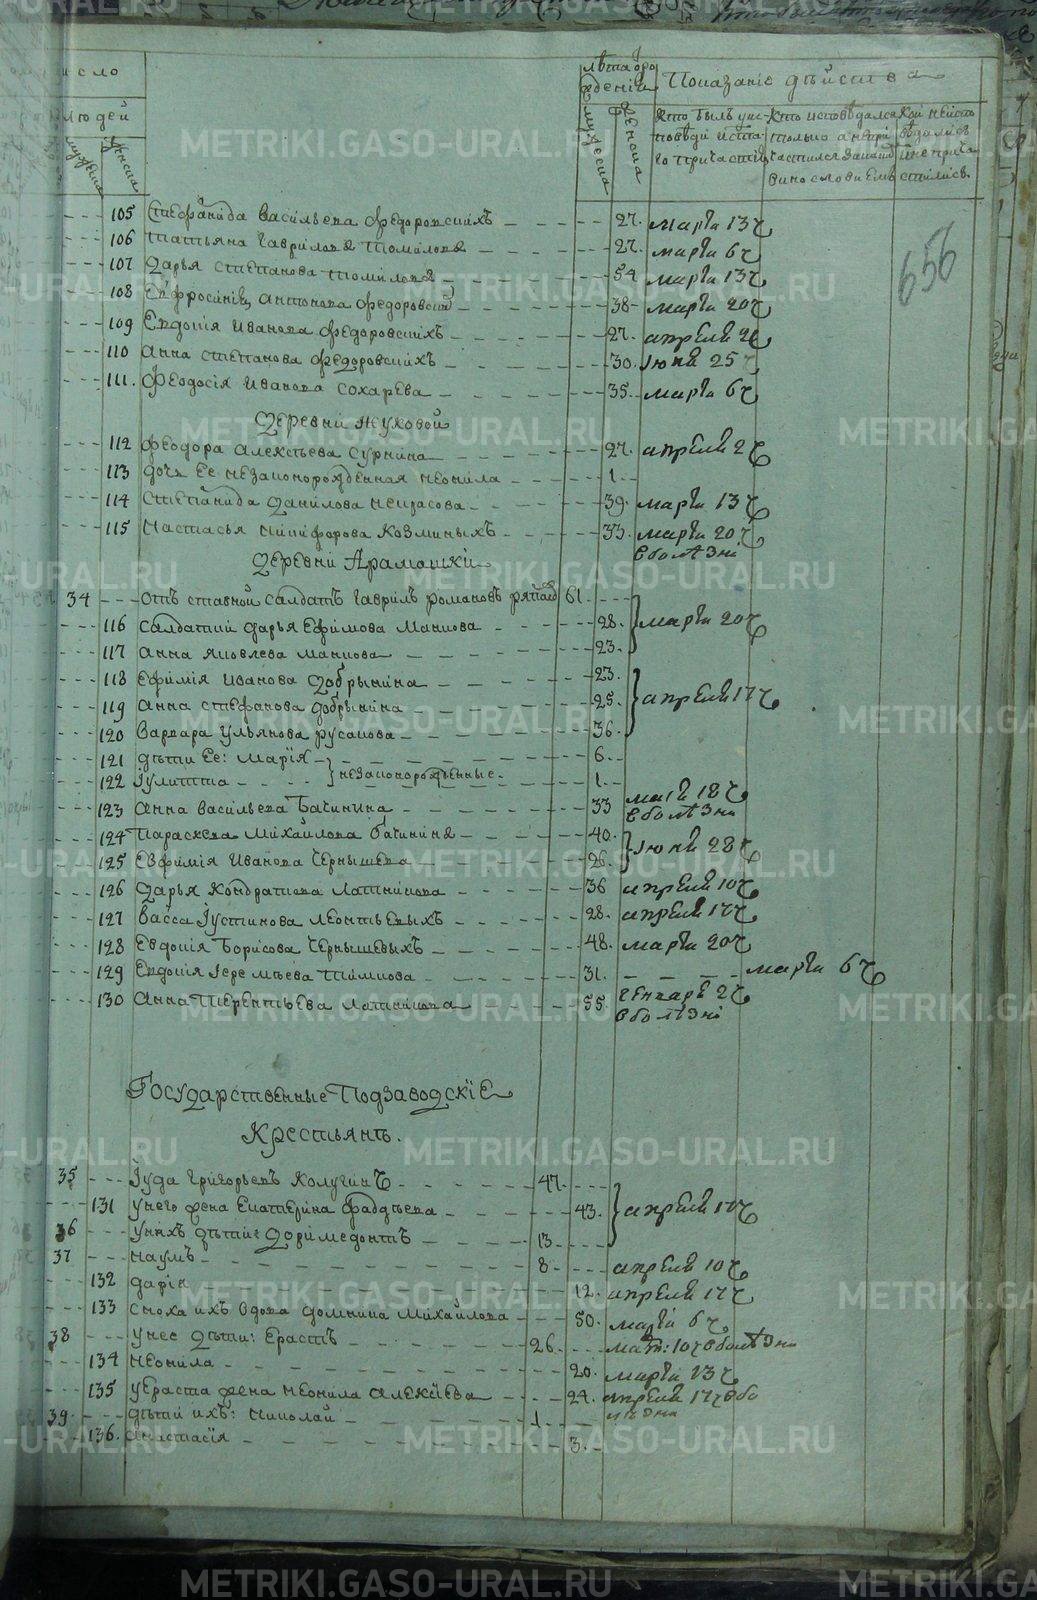 число
людей
мужеска
женска
лѣта ѿро
жденія
мужеска
женска
Показаніе дѣйства
Кто былъ у испо
повѣди и ста
го причастія
Кто исповѣдался
только а не при
частился за какой
виною и по ихъ
Кои не испо
вѣдались
и не прича
стились
656
105 Стефанида Васильева Федоровскихъ 27. марта 13 ч
106 Татьяна Гаврилова Томилова 27. марта 6 ч
107 Дарья Степанова Томилова 54 марта 13 ч
108 Евфросинія Антонова Федоровски 38 марта 20 ч
109 Евдокія Иванова Федоровскихъ 27. апреля 2 ч
110 Анна Степанова Федоровскихъ 30. Іюня 25 ч
111. Феодосія Иванова Сохарева 35. марта 6 ч
Деревни Жуковой
112 Феодора Алексѣева Сурнина 27. апреля 2 ч
113 дочь Ее незаконорожденная Неонила 1
114 Степанида Данилова Некрасова 39. марта 13 ч
115 Настасья Никифорова Козминыхъ 33. марта 20 ч
в болѣзни
Деревни Арамашки
34 отъ ставной салдатъ Гаврилъ Романовъ 61.
116 Салдатки Дарья Ефимова Манкова 28. марта 20 ч
117 Анна Яковлева Манкова 23.
118 Ефимія Иванова Добрынина 23.
119 Анна Стефанова Добрынина 25. апреля 17 ч
120 Варвара Ульянова Русакова 36.
121 дѣти Ее: Марія 6.
122 Іулитта незаконорожденные 1.
123 Анна Васильева Бачинина 33 мая 18 ч
в болѣзни
124 Параскева Михайлова Бачинина 40.
125 Евфимія Иванова Чернышева 26. Іюня 28 ч
126 Дарья Кондратьева Латникова 36 апреля 10 ч
127 Васса Іустинова Леонтьевыхъ 28. апреля 17 ч
128 Евдокія Борисова Чернышевыхъ 48. марта 20 ч
129 Евдокія Іеремѣева 31. марта 6 ч
130 Анна Терентьева Латникова 55. генваря 2 ч
в болѣзни
Государственные Подзаводскіе
Крестьянъ.
35 Іуда Григорьевъ Колугинъ 47.
131 У него жена Екатерина Фаддѣева 43. апреля 17 ч
36 У нихъ дѣти: Доримедонтъ 13
37 Наумъ 8 апреля 10 ч
132 Дарія 12. апреля 17 ч
133 Сноха ихъ вдова Домника Михайлова 50. марта 6 ч
38 У нее дѣти: Ерастъ 26. мат: 10 ч в болѣзни
134 Неонила 20. марта 13 ч
135 У Ераста жена Неонила Алексіева 24. апреля 17 ч в бо
лѣзни
39 дѣти ихъ: Николай 1
136. Анастасія 3.